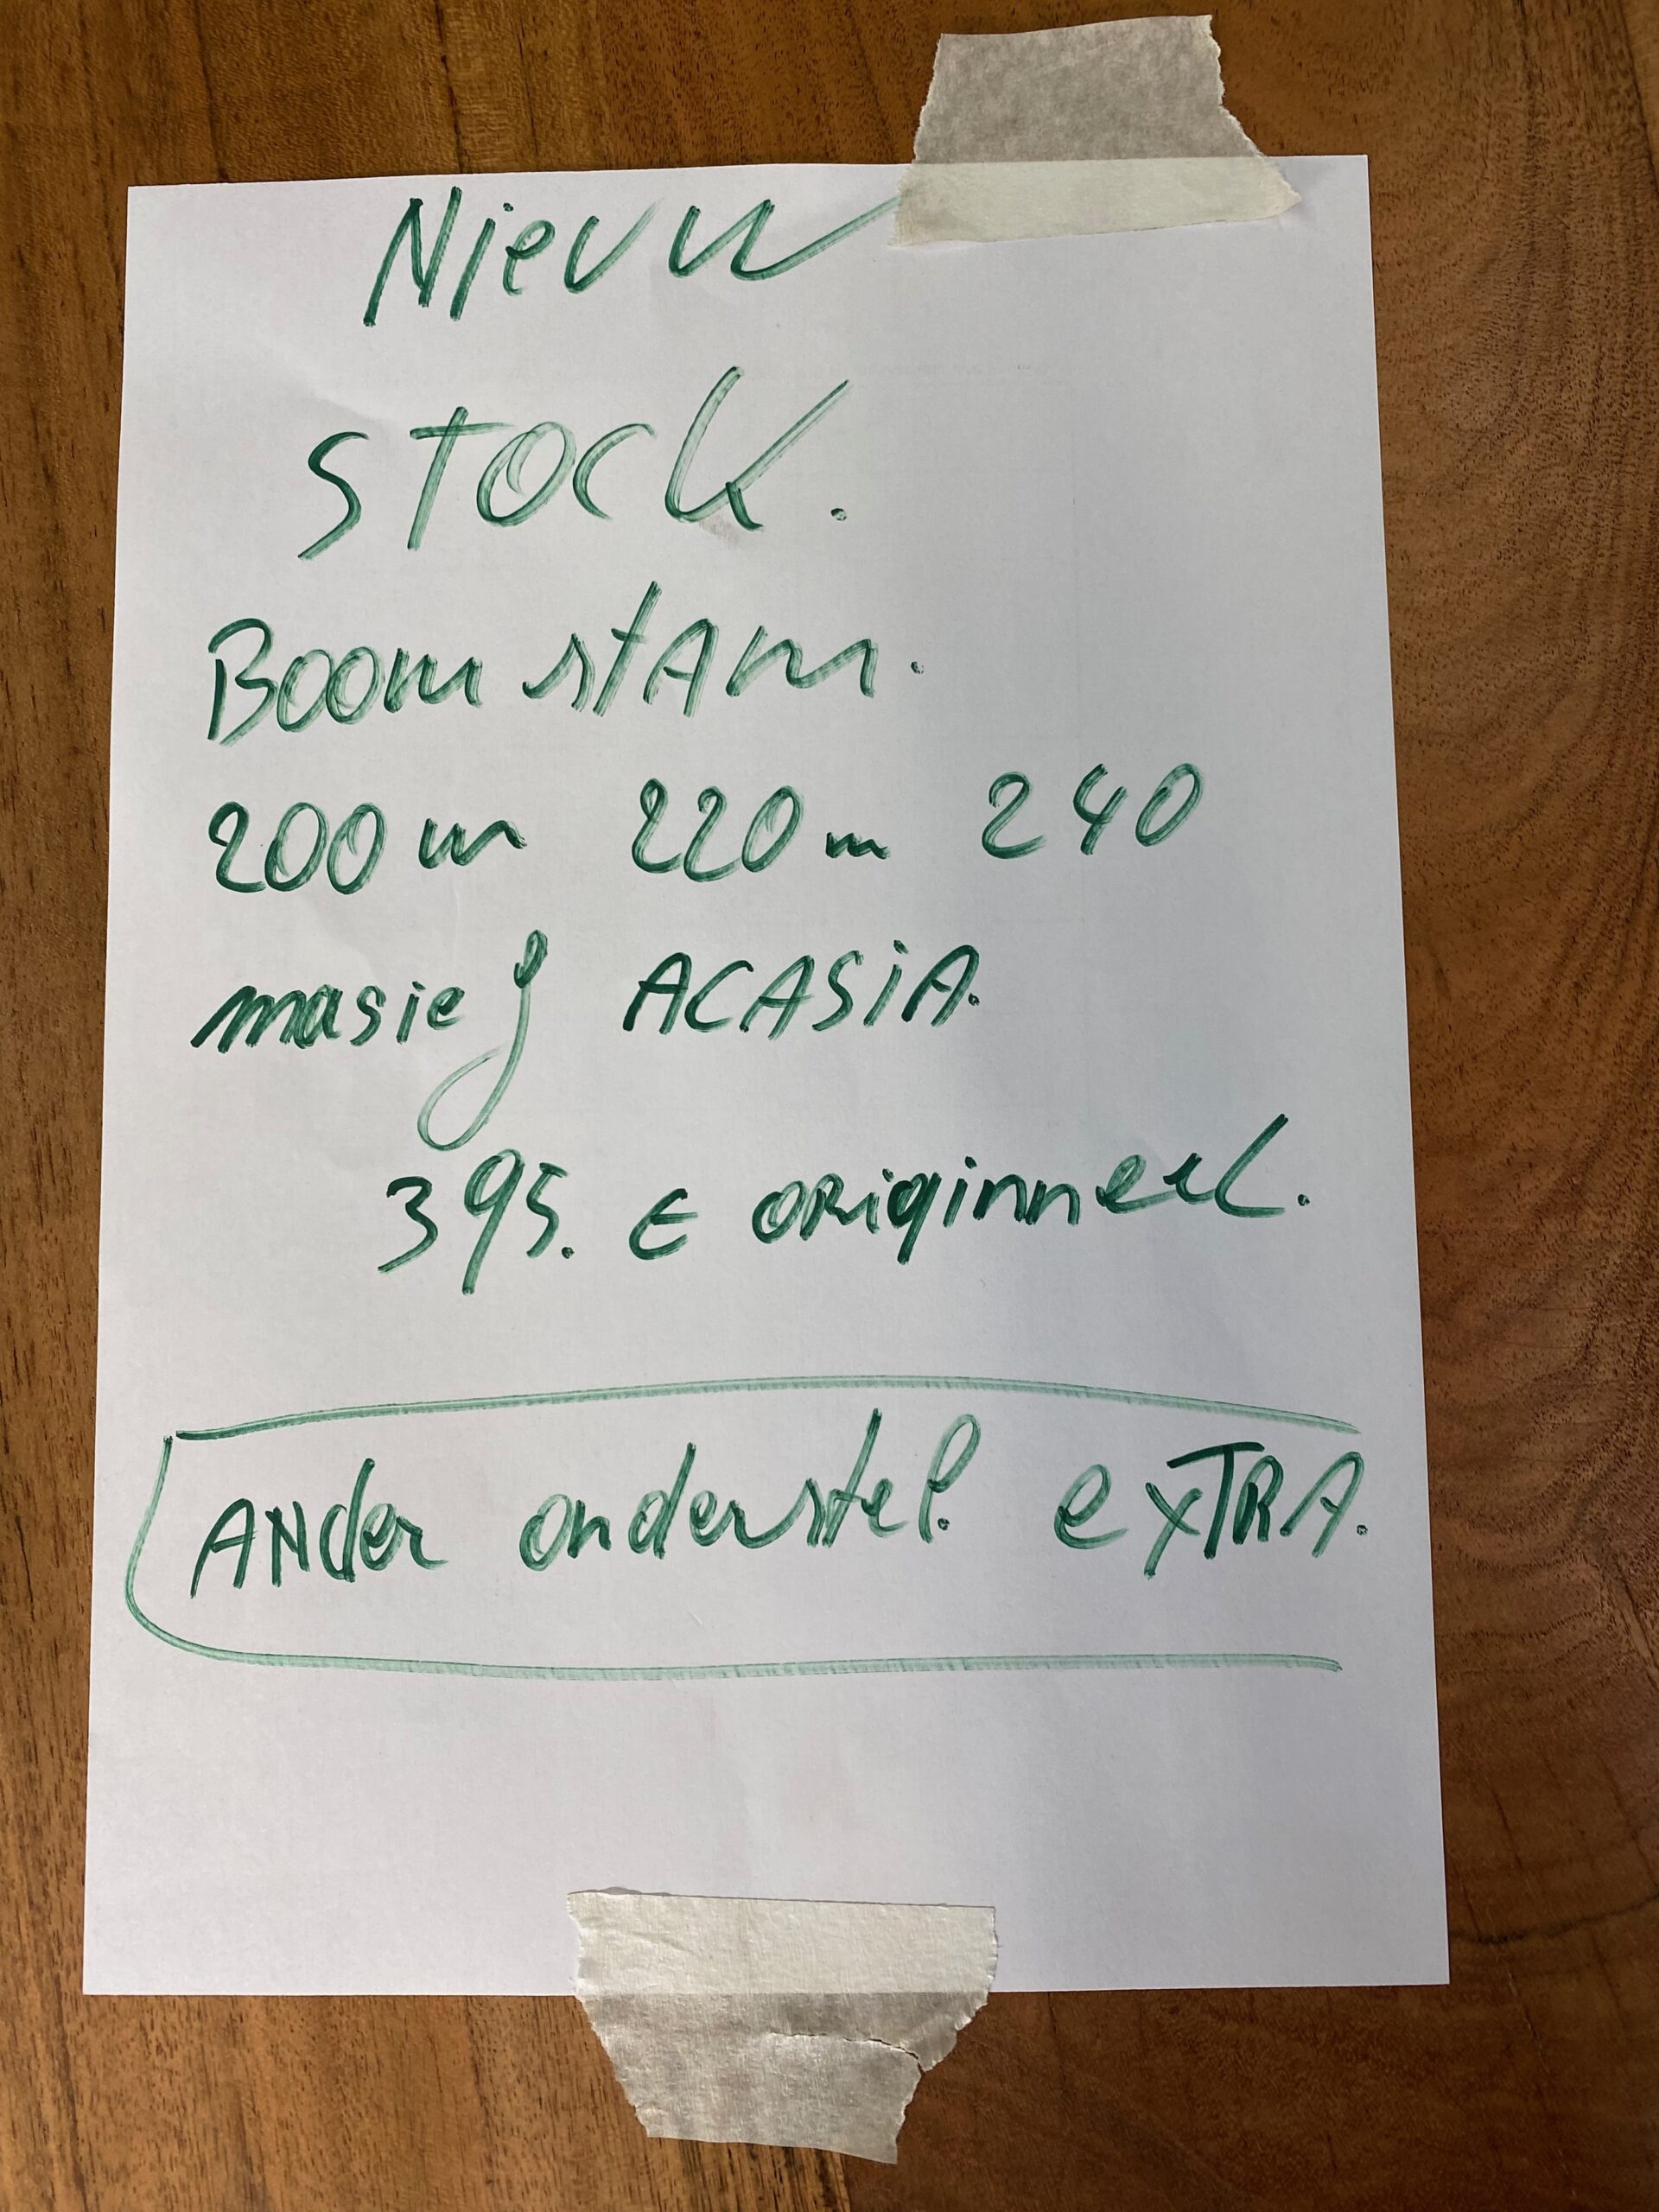 Nieuw
STOCK.
Boomstam.
200 m 220 m 240
masief ACASiA.
395. € ORiginneel.
ANder onderstel. exTRA.